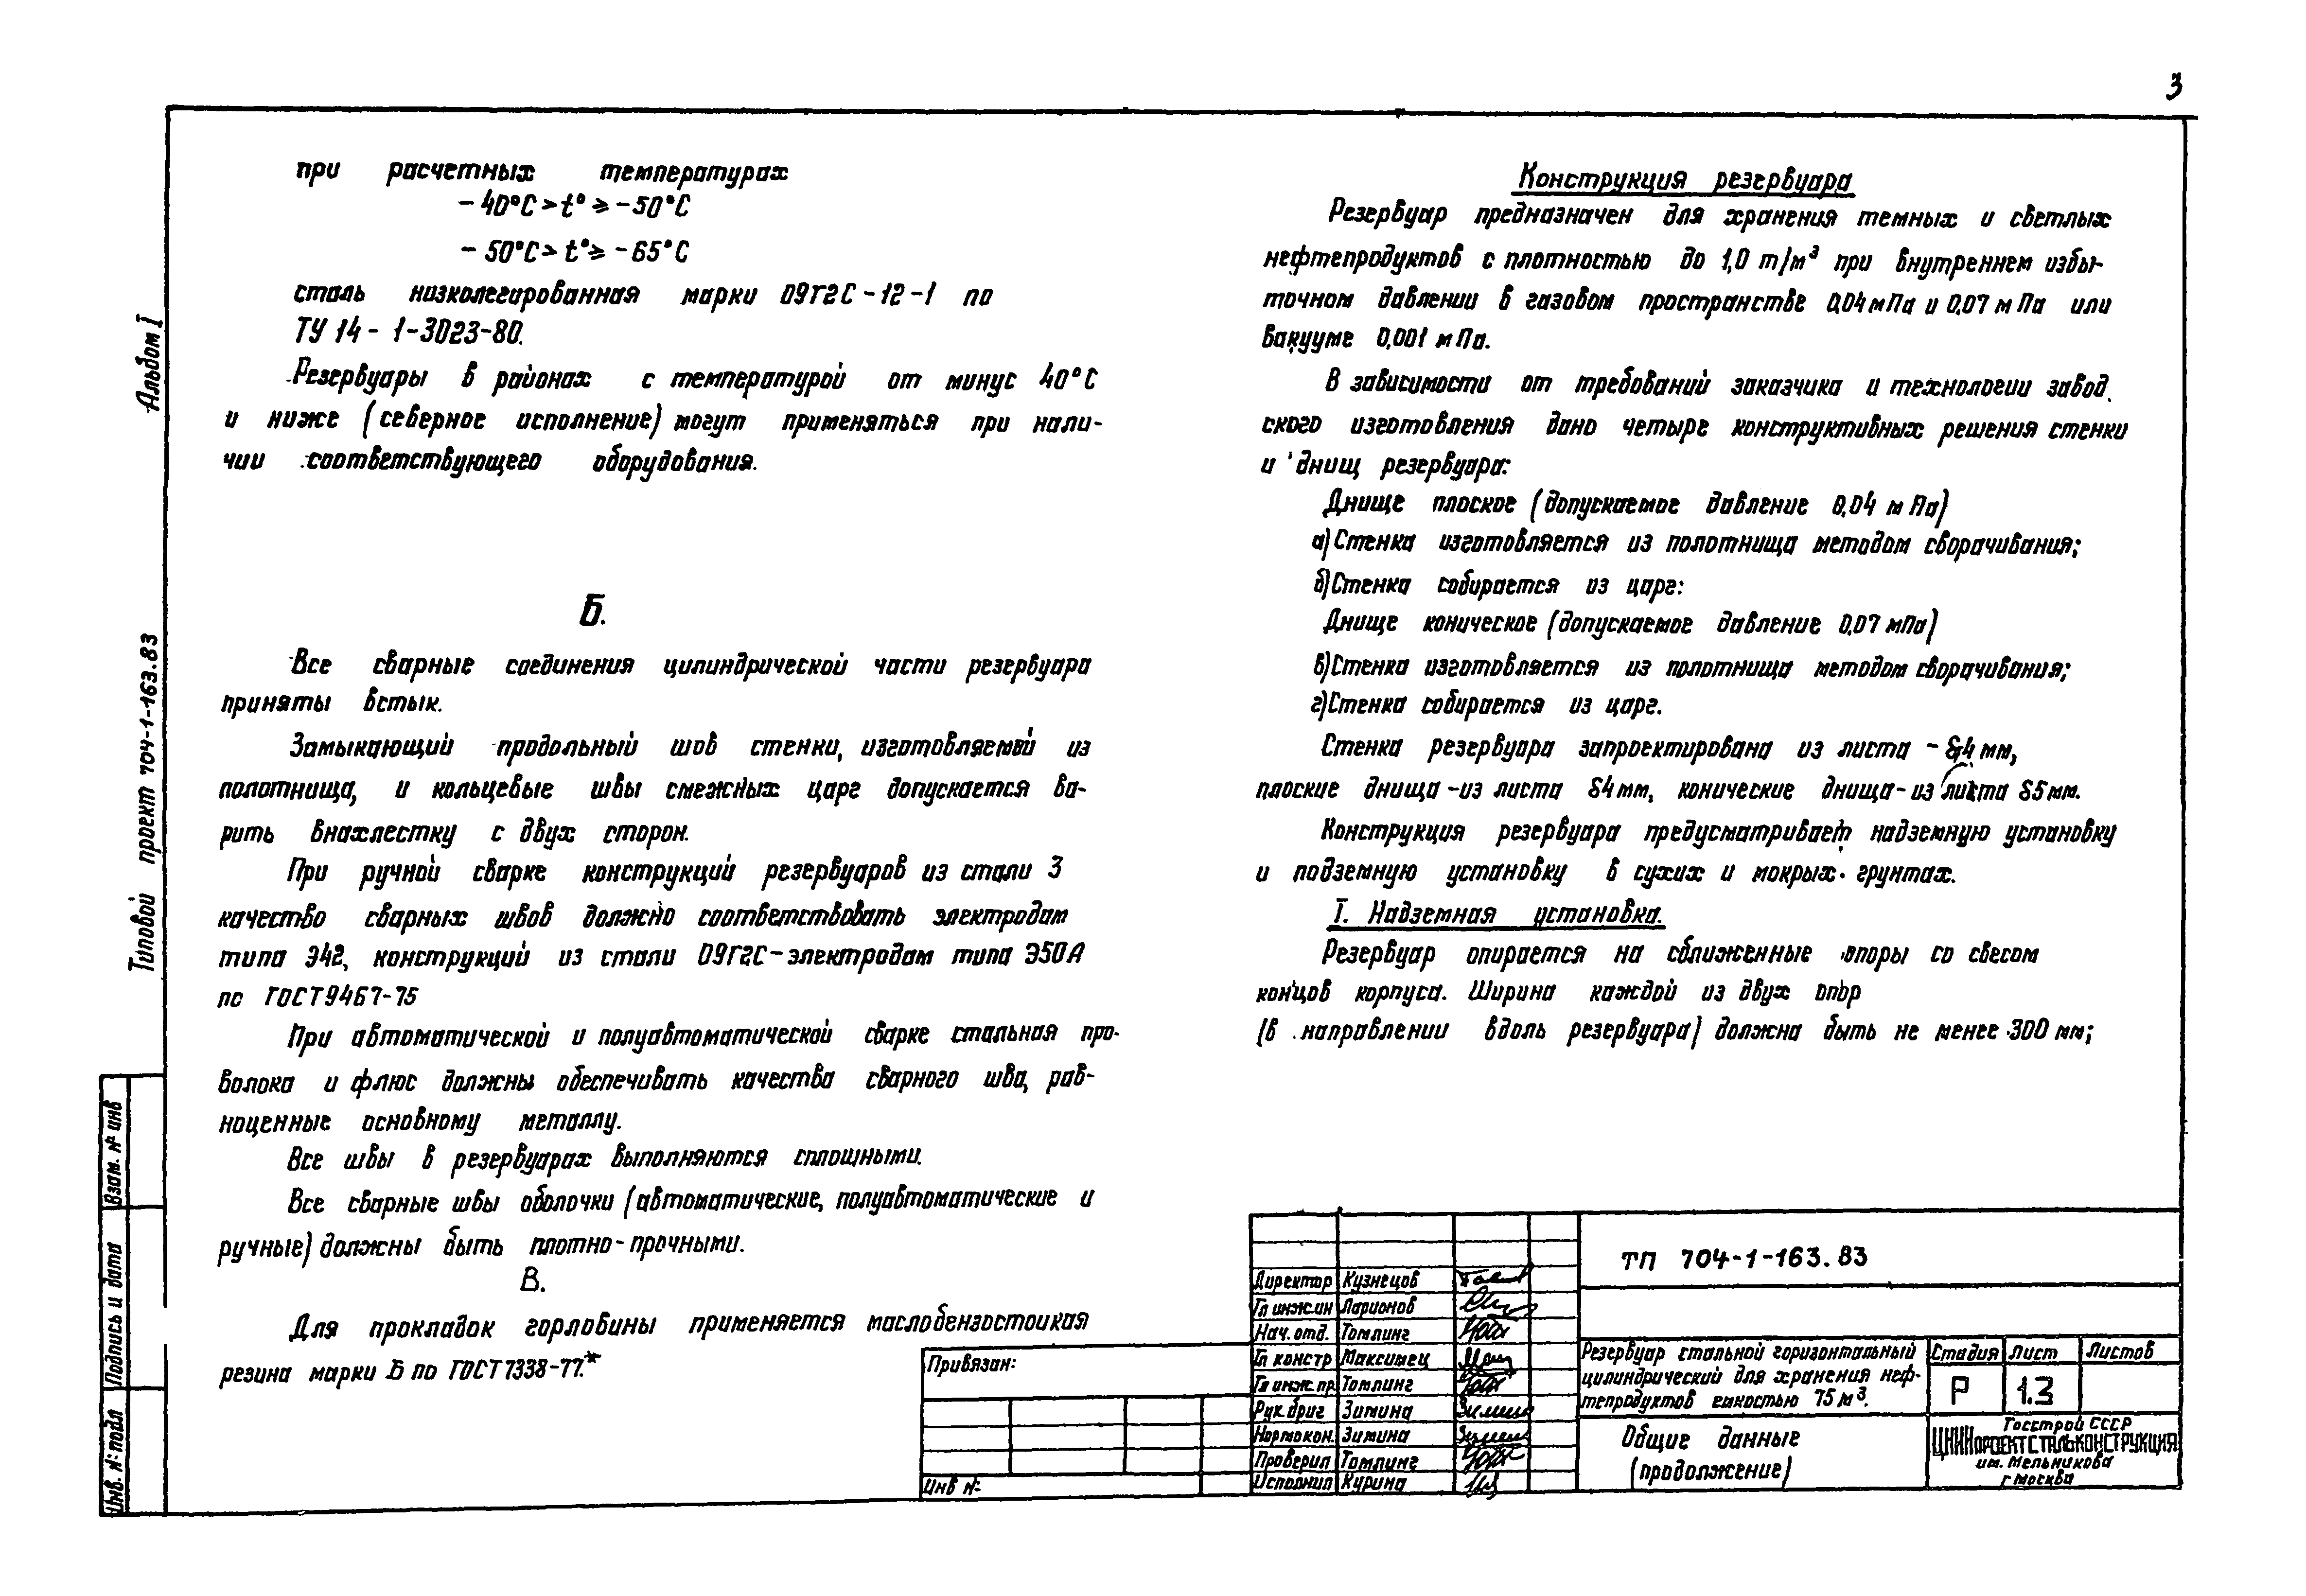 3
при расчетных температурах
- 40°С > t° ⩾ -50°С
- 50°С > t° ⩾ -65°С
сталь низколегированная марки 09Г2С-12-1 по
ТУ 14-1-3023-80.
Резервуары в районах с температурой от минус 40°С
и ниже (северное исполнение) могут применяться при нали-
чии соответствующего оборудования.
Б.
Все сварные соединения цилиндрической части резервуара
приняты встык.
Замыкающий продольный шов стенки, изготовляемой из
полотнища, и кольцевые швы смежных царг допускается ва-
рить внахлестку с двух сторон.
При ручной сварке конструкций резервуаров из стали 3
качество сварных швов должно соответствовать электродам
типа Э42, конструкций из стали 09Г2С-электродам типа Э50А
по ГОСТ 9467-75
При автоматической и полуавтоматической сварке стальная про-
волока и флюс должны обеспечивать качества сварного шва, рав-
ноценные основному металлу.
Все швы в резервуарах выполняются сплошными.
Все сварные швы оболочки (автоматические, полуавтоматические и
ручные) должны быть плотно-прочными.
В.
Для прокладок горловины применяется маслобензостоикая
резина марки Б по ГОСТ 7338-77.*
Конструкция резервуара
Резервуар предназначен для хранения темных и светлых
нефтепродуктов с плотностью до 1,0 т/м³ при внутреннем избы-
точном давлении в газовом пространстве 0,04 мПа и 0,07 мПа или
вакууме 0,001 мПа.
В зависимости от требований заказчика и технологии завод
ского изготовления дано четыре конструктивных решения стенки
и днищ резервуара:
Днище плоское (допускаемое давление 0,04 мПа)
а) Стенка изготовляется из полотнища методом сворачивания;
б) Стенка собирается из царг:
Днище коническое (допускаемое давление 0,07 мПа)
в) Стенка изготовляется из полотнища методом сворачивания;
г) Стенка собирается из царг.
Стенка резервуара запроектирована из листа - δ4 мм,
плоские днища - из листа δ4 мм, конические днища - из листа δ5 мм.
Конструкция резервуара предусматривает надземную установку
и подземную установку в сухих и мокрых грунтах.
I. Надземная установка.
Резервуар опирается на сближенные опоры со свесом
концов корпуса. Ширина каждой из двух опор
(в направлении вдоль резервуара) должна быть не менее 300 мм;
Альбом I
Типовой проект 704-1-163.83
Взам. № инв
Подпись и дата
Инв. № подл
Привязан:
Инв №
Директор Кузнецов
Гл инж ин Ларионов
Нач. отд. Томлинг
Гл констр Максимец
Гл инж. пр. Томлинг
Рук. бриг Зимина
Нормокон. Зимина
Проверил Томлинг
Исполнил Курина
ТП 704-1-163.83
Резервуар стальной горизонтальный
цилиндрический для хранения неф-
тепродуктов емкостью 75 м³.
Стадия Лист Листов
Р 1.3
Общие данные
(продолжение)
Госстрой СССР
ЦНИИпроектстальконструкция
им. Мельникова
г Москва